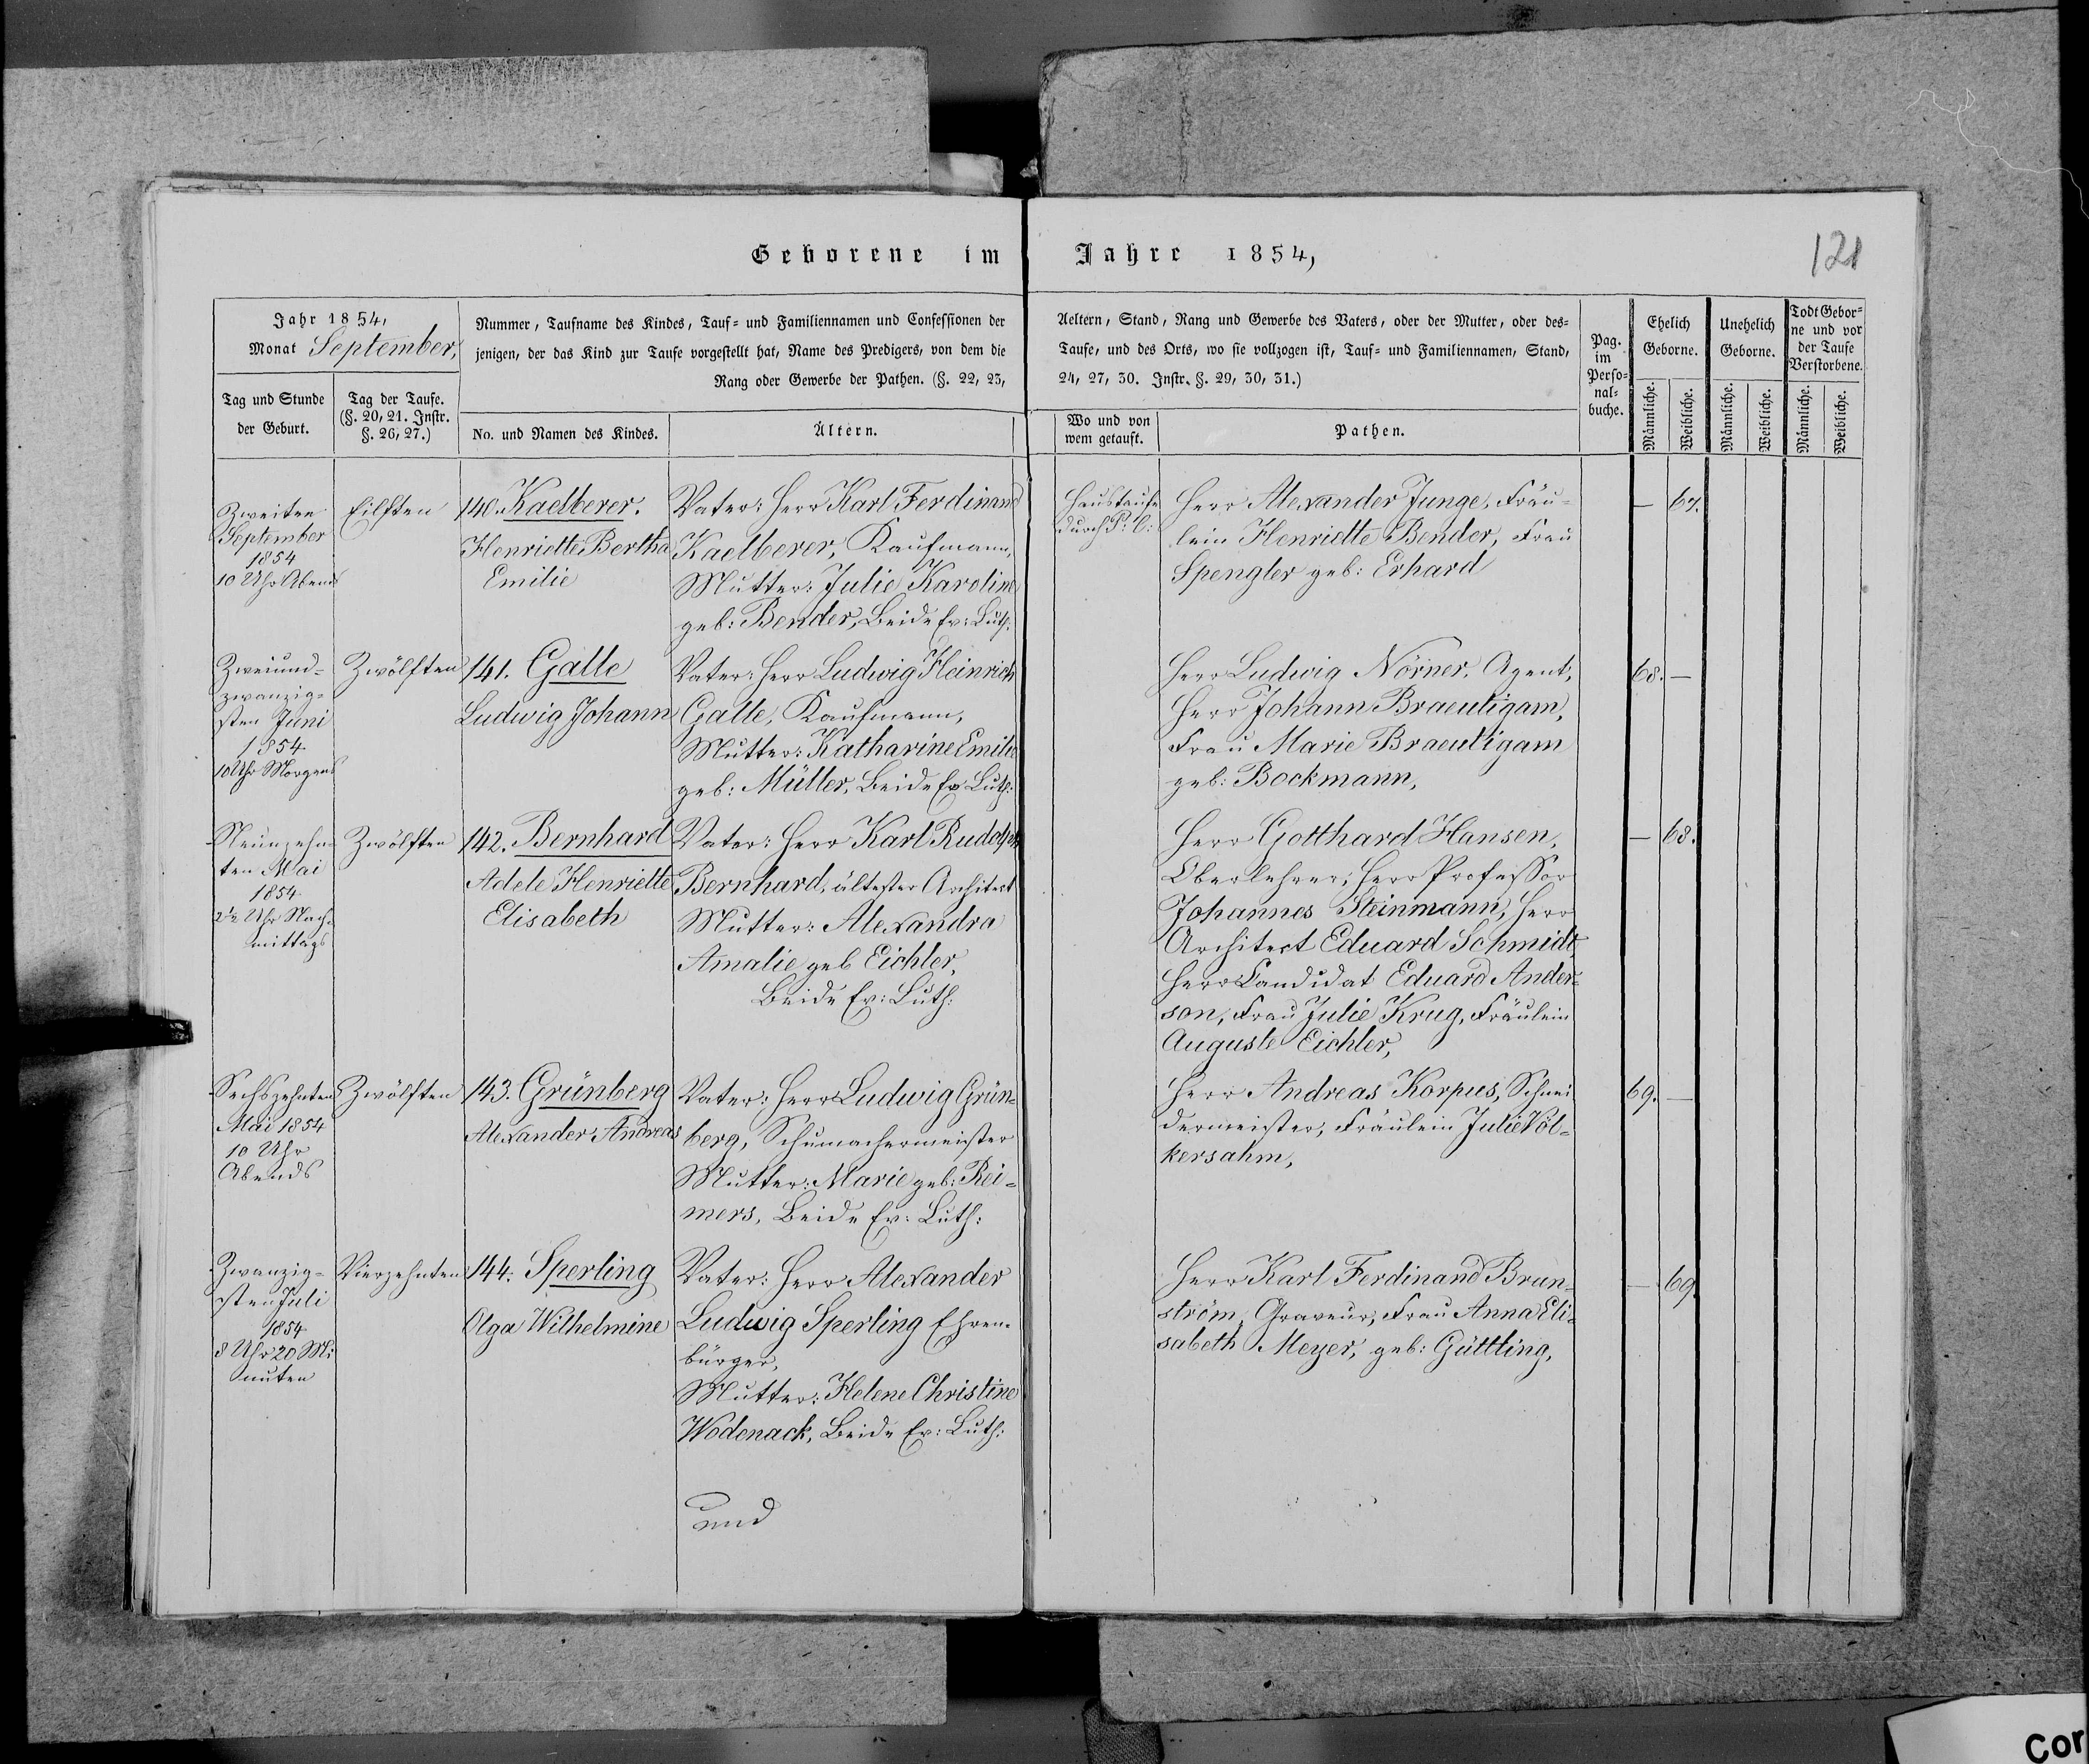 Geborene im Jahre 1854,
121
Jahr 1854,
Monat September,
Nummer, Taufname des Kindes, Tauf- und Familiennamen und Confessionen der Aeltern, Stand, Rang und Gewerbe des Vaters, oder der Mutter, oder des-
jenigen, der das Kind zur Taufe vorgestellt hat, Name des Predigers, von dem die Taufe, und des Orts, wo sie vollzogen ist, Tauf- und Familiennamen, Stand,
Rang oder Gewerbe der Pathen. (§. 22, 23, 24, 27, 30. Instr. §. 29, 30, 31.)
Tag und Stunde
der Geburt.
Tag der Taufe.
(§. 20, 21. Instr.
§. 26, 27.)
No. und Namen des Kindes.
Ältern.
Wo und von
wem getauft.
Pathen.
Pag.
im
Perso-
nal-
buche.
Ehelich
Geborne.
Unehelich
Geborne.
Todt Gebor-
ne und vor
der Taufe
Verstorbene.
Männliche.
Weibliche.
Männliche.
Weibliche.
Männliche.
Weibliche.
Zweiten
September
1854
10 Uhr Abends
Eilften
140. Kaelberer.
Henriette Bertha
Emilie
Vater: Herr Karl Ferdinand
Kaelberer, Kaufmann,
Mutter: Julie Karoline
geb: Bender, Beide Ev: Luth:
Haustaufe
durch P: C:
Herr Alexander Junge, Fräu-
lein Henriette Bender, Frau
Spengler geb: Erhard
— 67.
Zweiund-
zwanzig-
sten Juni
1854
10 Uhr Morgens
Zwölften
141. Galle
Ludwig Johann
Vater: Herr Ludwig Heinrich
Galle, Kaufmann,
Mutter: Katharine Emilie
geb: Müller, Beide Ev: Luth:
Herr Ludwig Nörner, Agent,
Herr Johann Braeutigam,
Frau Marie Braeutigam
geb: Bockmann,
68. —
Neunzehn-
ten Mai
1854
2½ Uhr Nach-
mittags
Zwölften
142. Bernhard
Adele Henriette
Elisabeth
Vater: Herr Karl Rudolph
Bernhard, ältester Architect
Mutter: Alexandra
Amalie geb Eichler,
Beide Ev: Luth:
Herr Gotthard Hansen,
Oberlehrer, Herr Professor
Johannes Steinmann, Herr
Architect Eduard Schmidt,
Herr Candidat Eduard Ander-
son, Frau Julie Krug, Fräulein
Auguste Eichler,
— 68.
Sechszehnten
Mai 1854
10 Uhr
Abends
Zwölften
143. Grünberg
Alexander Andreas
Vater: Herr Ludwig Grün-
berg, Schumachermeister
Mutter: Marie geb: Rei-
mers, Beide Ev: Luth:
Herr Andreas Korpus, Schnei
dermeister, Fräulein Julie Völ-
kersahm,
69. —
Zwanzig-
sten Juli
1854
8 Uhr 20 Mi
nuten
Vierzehnten
144. Sperling
Olga Wilhelmine
Vater: Herr Alexander
Ludwig Sperling Ehren-
bürger,
Mutter: Helene Christine
Wodenack, Beide Ev: Luth:
Herr Karl Ferdinand Brun-
ström, Graveur, Frau Anna Eli-
sabeth Meyer, geb: Güttling,
— 69.
und
Cor